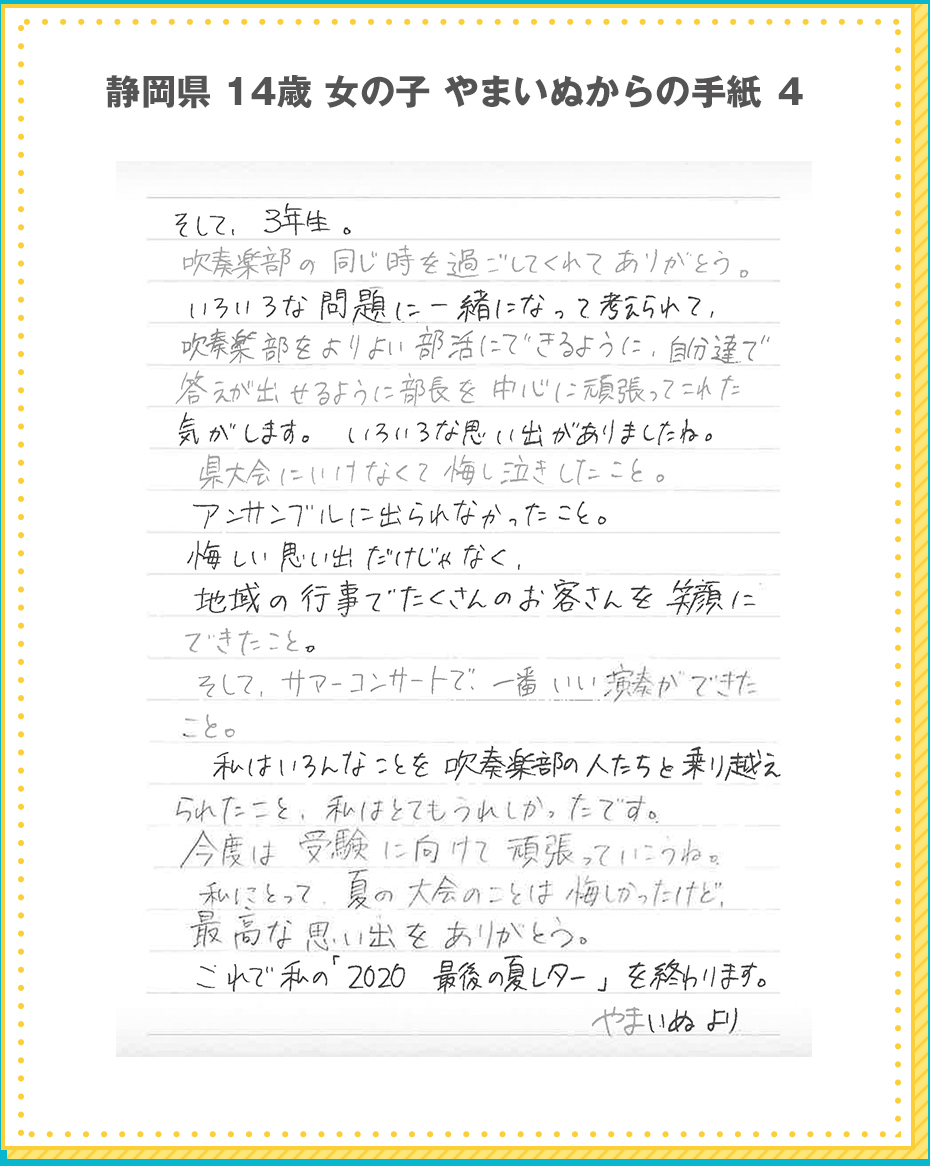 静岡県 14歳 女の子 やまいぬからの手紙 4
そして、3年生。
吹奏楽部の同じ時を過ごしてくれてありがとう。
いろいろな問題に一緒になって考えられて、
吹奏楽部をよりよい部活にできるように、自分達で
答えが出せるように部長を中心に頑張ってこれた
気がします。 いろいろな思い出がありましたね。
県大会にいけなくて悔し泣きしたこと。
アンサンブルに出られなかったこと。
悔しい思い出だけじゃなく、
地域の行事でたくさんのお客さんを笑顔に
できたこと。
そして、サマーコンサートで、一番いい演奏ができた
こと。
私はいろんなことを吹奏楽部の人たちと乗り越え
られたこと、私はとてもうれしかったです。
今度は受験に向けて頑張っていこうね。
私にとって、夏の大会のことは悔しかったけど、
最高な思い出をありがとう。
これで私の「2020 最後の夏レター」を終わります。
やまいぬより